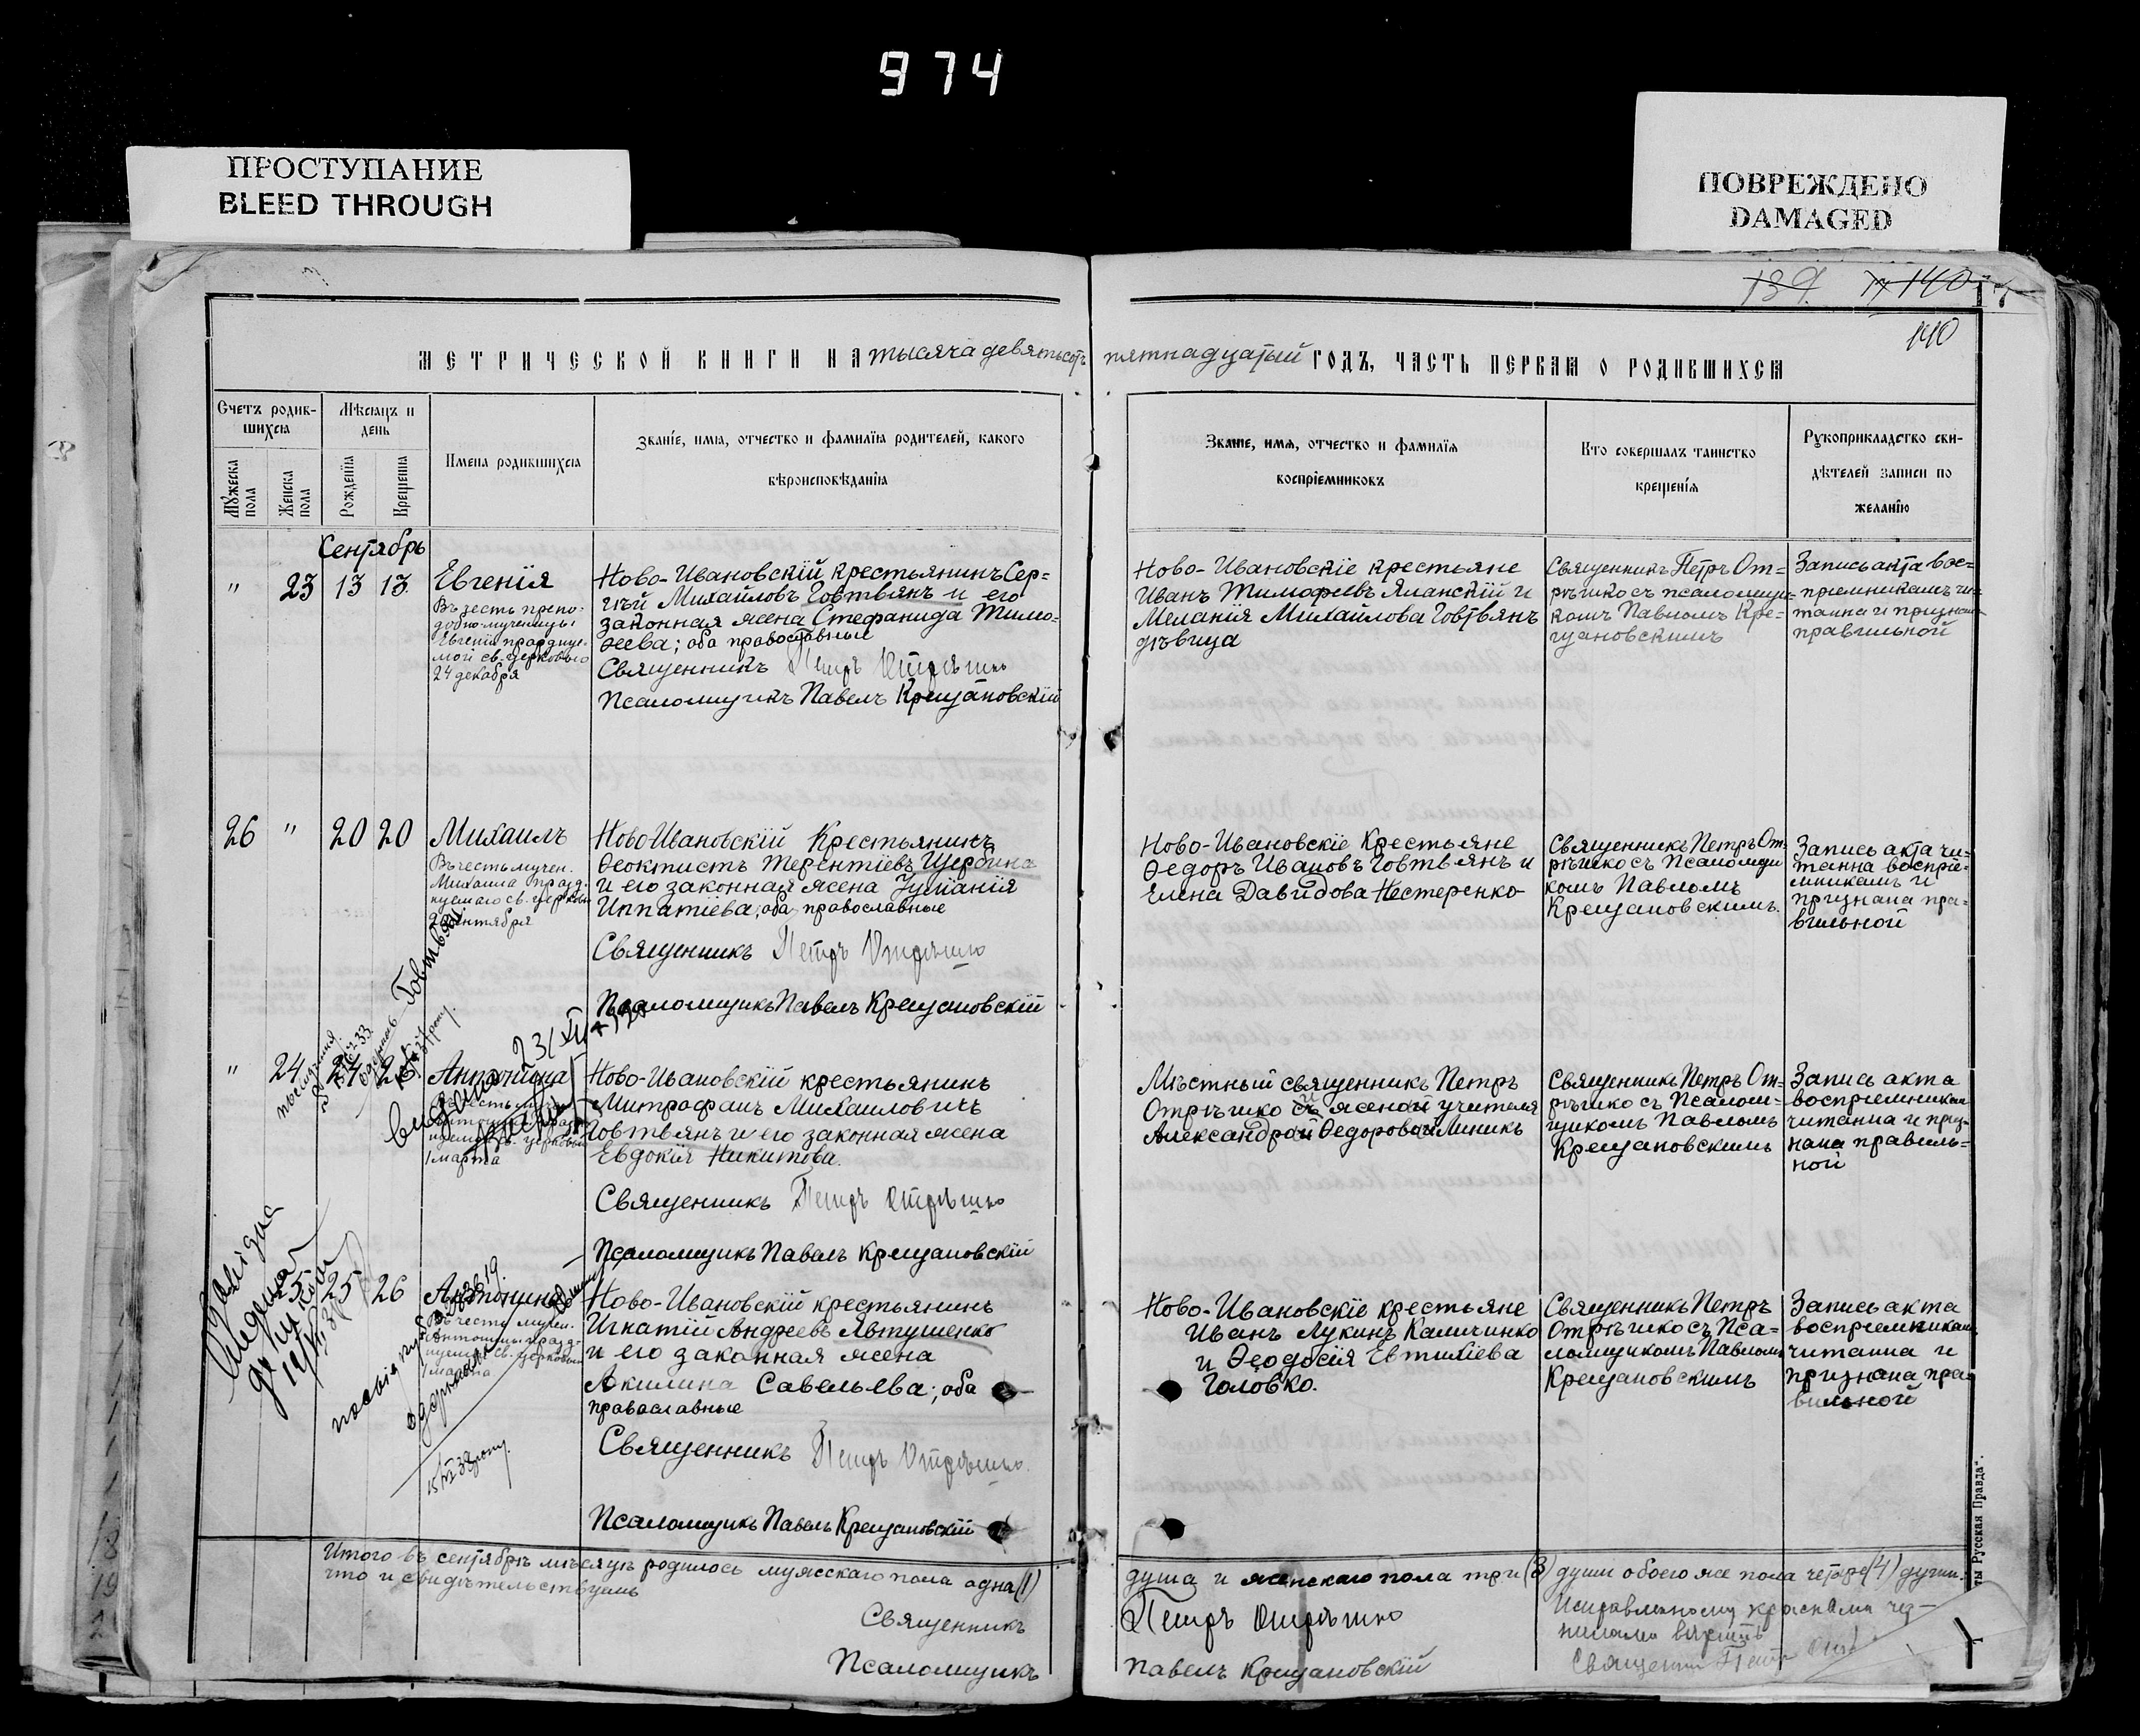 974
ПРОСТУПАНИЕ
BLEED THROUGH
ПОВРЕЖДЕНО
DAMAGED
139. 140
140
МЕТРИЧЕСКОЙ КНИГИ НА тысяча девятьсотъ пятнадцатый ГОДЪ, ЧАСТЬ ПЕРВАЯ О РОДИВШИХСЯ
Счетъ родив-
шихся
Мужеска пола
Женска пола
Мѣсяцъ и
день
Рожденія
Крещенія
Имена родившихся
Званіе, имя, отчество и фамилія родителей, какого
вѣроисповѣданія
Званіе, имя, отчество и фамилія
воспріемниковъ
Кто совершалъ таинство
крещенія
Рукоприкладство сви-
дѣтелей записи по
желанію
Сентябрь
" 23 13 13.
Евгенія
Въ честь препо-
добно-мученицы
Евгеніи празднуе-
мой св. церковью
24 декабря
Ново-Ивановскій крестьянинъ Сер-
гѣй Михайловъ Говтвянъ и его
законная жена Стефанида Тимо-
ѳеева; оба православные
Священникъ Петръ Отрѣшко
Псаломщикъ Павелъ Крещановскій
Ново-Ивановскіе крестьяне
Иванъ Тимофеевъ Яланскій и
Меланія Михайлова Говтвянъ
дѣвица
Священникъ Петръ От-
рѣшко съ псаломщи-
комъ Павломъ Кре-
щановскимъ
Запись акта вос-
пріемникамъ чи-
танна и признана
правильной
26 " 20 20
Михаилъ
Въ честь мучен.
Михаила празд-
нуемаго св. церковью
сентября
Ново-Ивановскій Крестьянинъ
Ѳеоктистъ Терентіевъ Щербина
и его законная жена Іуліанія
Ипатіева; оба православные
Священникъ Петръ Отрѣшко
Псаломщикъ Павелъ Крещановскій
Ново-Ивановскіе Крестьяне
Ѳедоръ Ивановъ Говтвянъ и
Елена Давидова Нестеренко
Священникъ Петръ От-
рѣшко съ Псаломщи
комъ Павломъ
Крещановскимъ.
Запись акта чи-
танна воспріе-
мникамъ и
признана пра-
вильной
" 24 24
Антонина
1 марта
Говтвян
видана
Ново-Ивановскій крестьянинъ
Митрофанъ Михаиловичъ
Говтвянъ и его законная жена
Евдокія Никитова.
Священникъ Петръ Отрѣшко
Псаломщикъ Павелъ Крещановскій
Мѣстный священникъ Петръ
Отрѣшко съ женой учителя
Александрой Ѳедоровой Линикъ
Священникъ Петръ От-
рѣшко съ Псалом-
щикомъ Павломъ
Крещановскимъ
Запись акта
воспріемникамъ
читанна и приз-
нана правиль-
ной
25 25 26
Антонина
Въ честь мучен.
Антонины празд-
нуемой св. церковью
1 марта
Ново-Ивановскій крестьянинъ
Игнатій Андреевъ Явтушенко
и его законная жена
Акилина Савельева; оба
православные
Священникъ Петръ Отрѣшко.
Псаломщикъ Павелъ Крещановскій
Ново-Ивановскіе крестьяне
Иванъ Лукинъ Калиčинко
и Ѳеодосія Евтихіева
Головко.
Священникъ Петръ
Отрѣшко съ Пса-
ломщикомъ Павломъ
Крещановскимъ
Запись акта
воспріемникамъ
читанна и
признана пра-
вильной
Итого въ сентябрѣ мѣсяцѣ родилось мужскаго пола одна (1) душа и женскаго пола три (3) души обоего же пола четыре (4) души.
что и свидѣтельствуемъ
Священникъ Петръ Отрѣшко
Псаломщикъ Павелъ Крещановскій
Исправленному красными чер-
нилами вѣрить
Священникъ Петръ
Русская Правда".